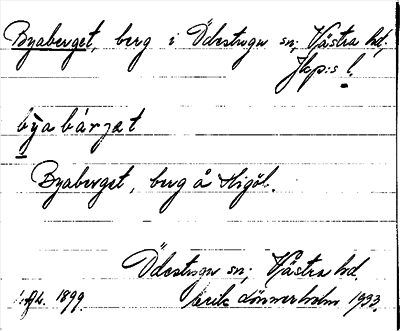 Byaberget, berg i Ödestugu sn; Västra hd,
Jkp:s l.
býa bárjat
Byaberget, berg å Högöl.
Ödestugu sn; Västra hd.
1899. Erik Lönnerholm 1933.